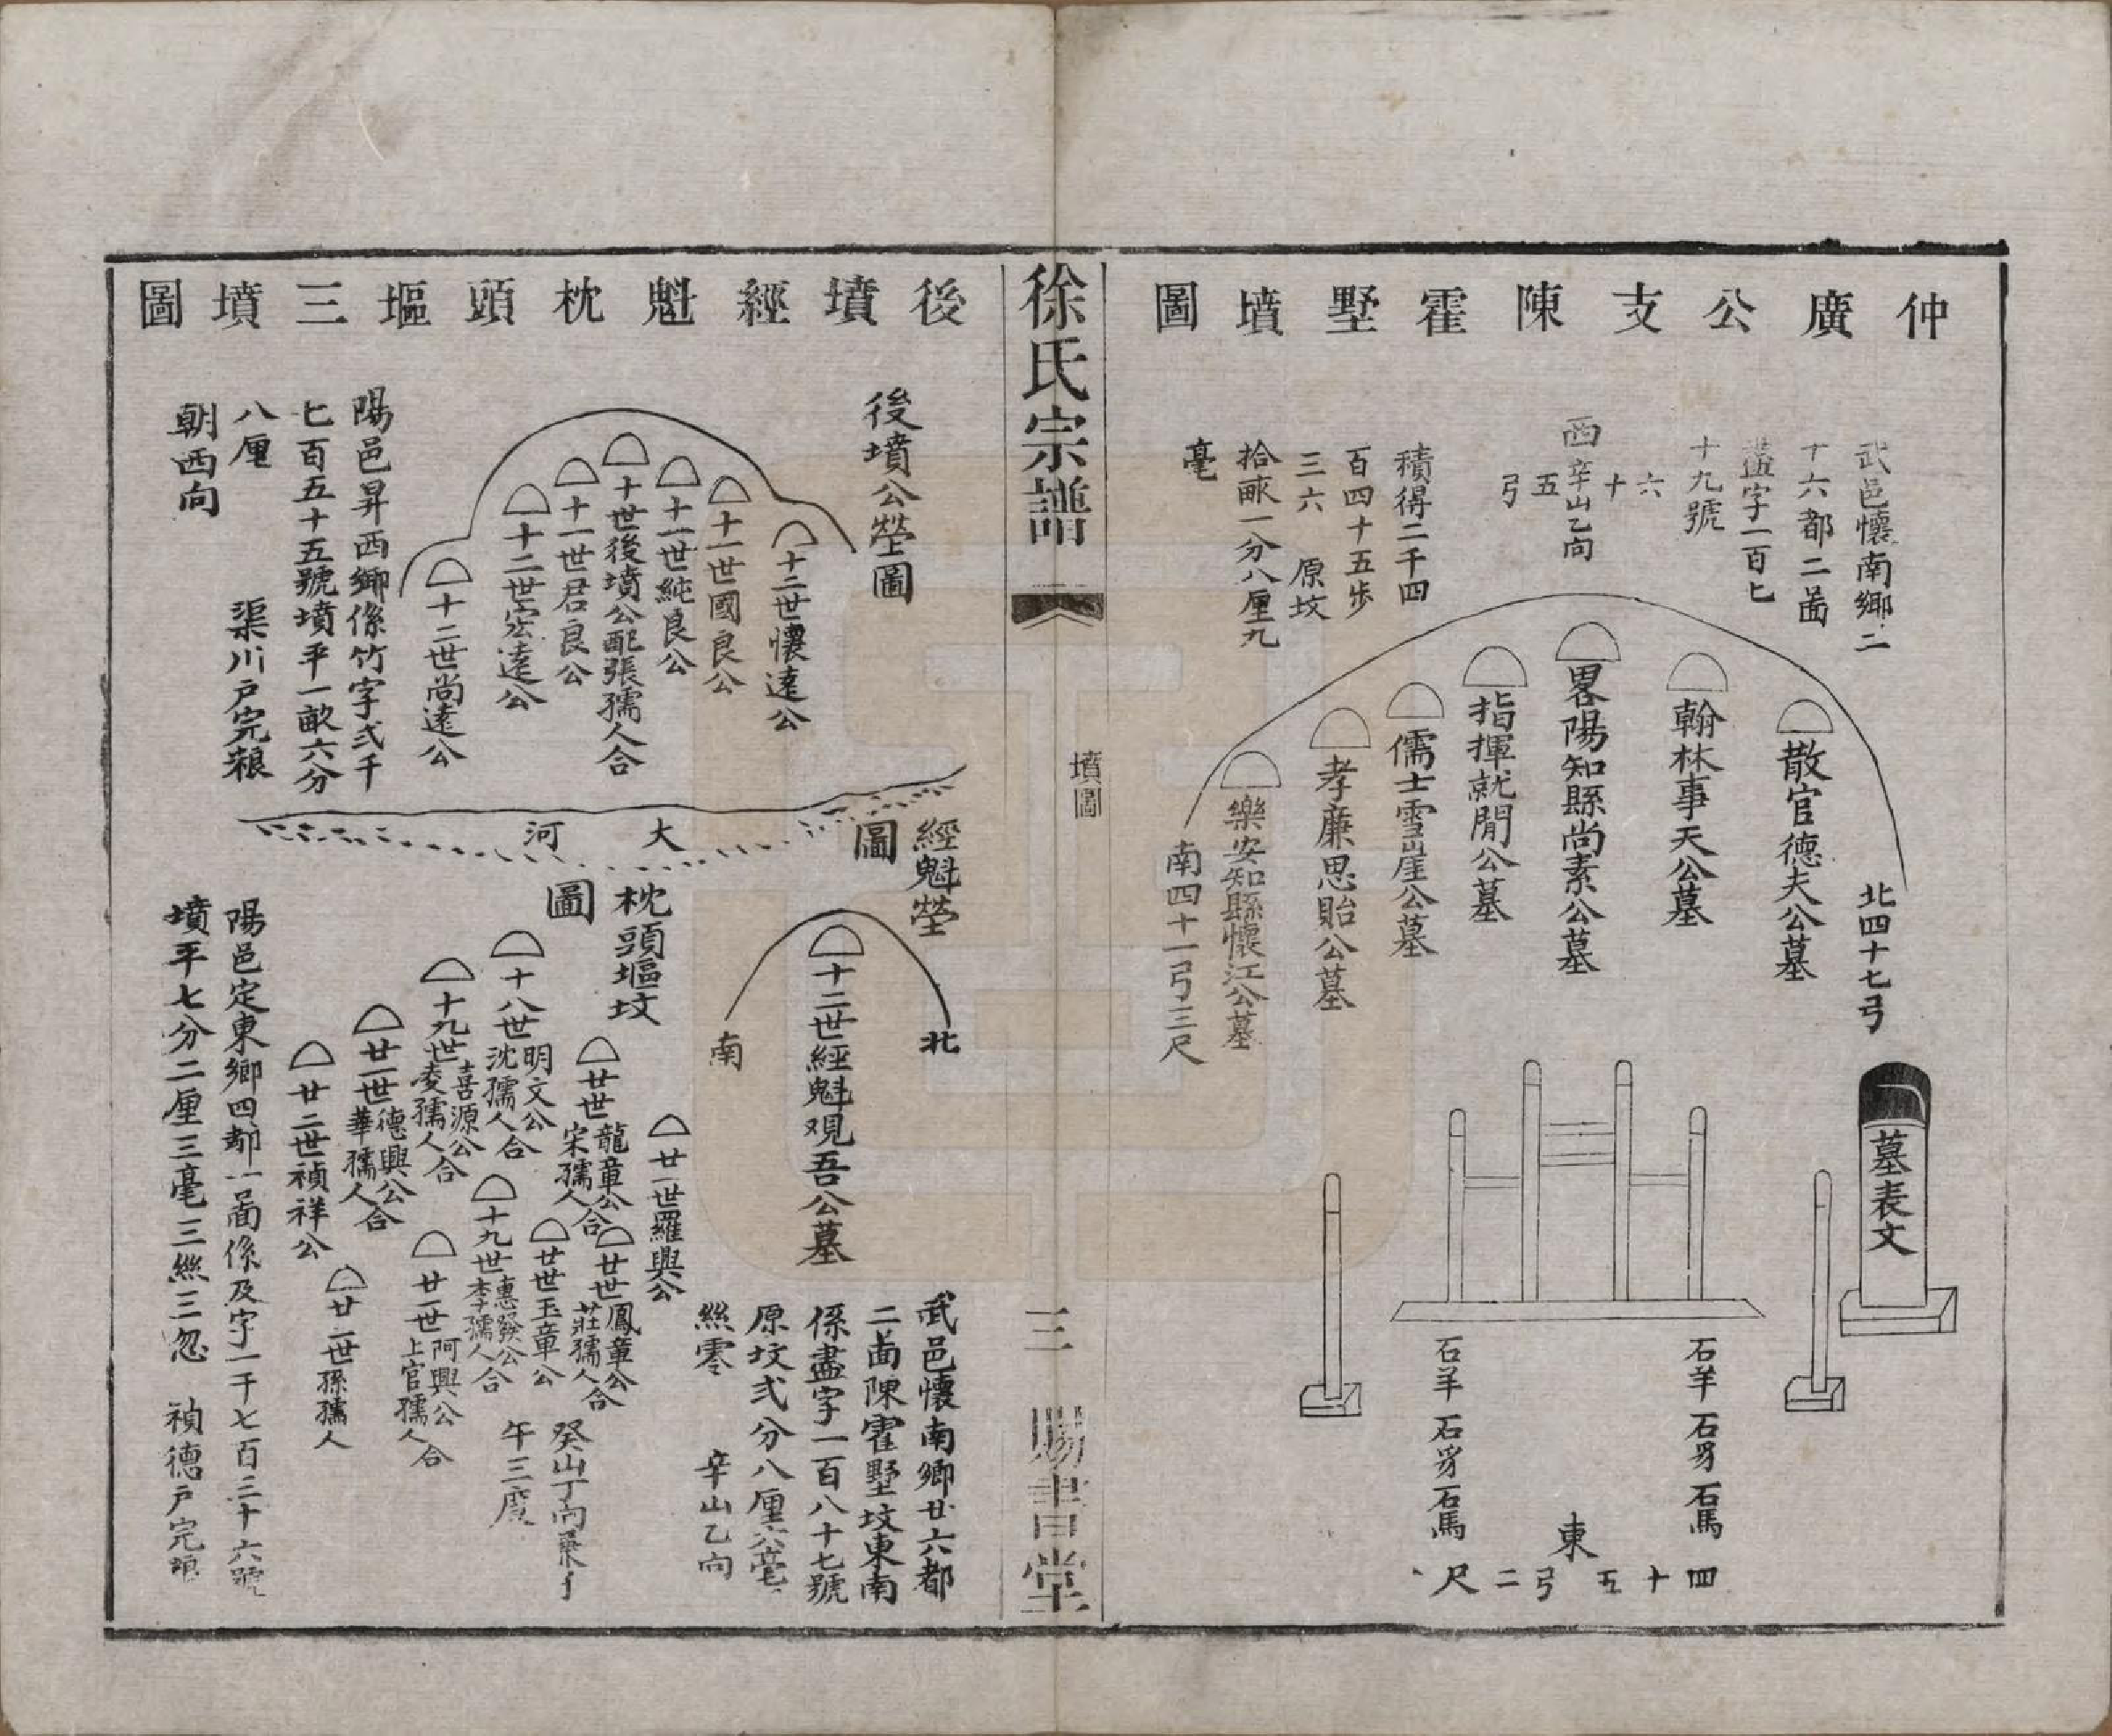 仲廣公支陳霍墅墳圖
武邑懷南鄉二
十六都二啚
盡字一百七
十九號
西
辛山乙向
六十五弓
積得二千四
百四十五步
三六 原坟
拾畝一分八厘九
毫
北四十七弓
散官德夫公墓
翰林事天公墓
畧陽知縣尚素公墓
指揮就閒公墓
儒士雪崖公墓
孝廉思貽公墓
樂安知縣懷江公墓
南四十一弓三尺
墓表文
石羊 石豸 石馬
石羊 石豸 石馬
東
四十五弓二尺
徐氏宗譜
墳圖
三
賜書堂
後墳經魁枕頭塸三墳圖
後墳公塋圖
十二世懷遠公
十一世國良公
十一世純良公
十世後墳公配張孺人合
十一世君良公
十二世宏遠公
十二世尚遠公
陽邑昇西鄉係竹字弍千
七百五十五號墳平一畝六分
八厘 渠川戶完粮
朝西向
大河
經魁塋
圖
北
十二世經魁观吾公墓
南
武邑懷南鄉廿六都
二啚陳霍墅坟東南
係盡字一百八十七號
原坟弍分八厘六毫
絲零 辛山乙向
枕頭塸坟
圖
廿一世羅興公
廿世龍章公宋孺人合
廿世鳳章公莊孺人合
十八世明文公沈孺人合
廿世玉章公
十九世喜源公凌孺人合
十九世惠發公李孺人合
廿一世德興公華孺人合
廿一世阿興公上官孺人合
廿二世禎祥公
廿二世孫孺人
癸山丁向兼子
午三度
陽邑定東鄉四都一啚係及字一千七百三十六號
墳平七分二厘三毫三絲三忽 禎德戶完粮